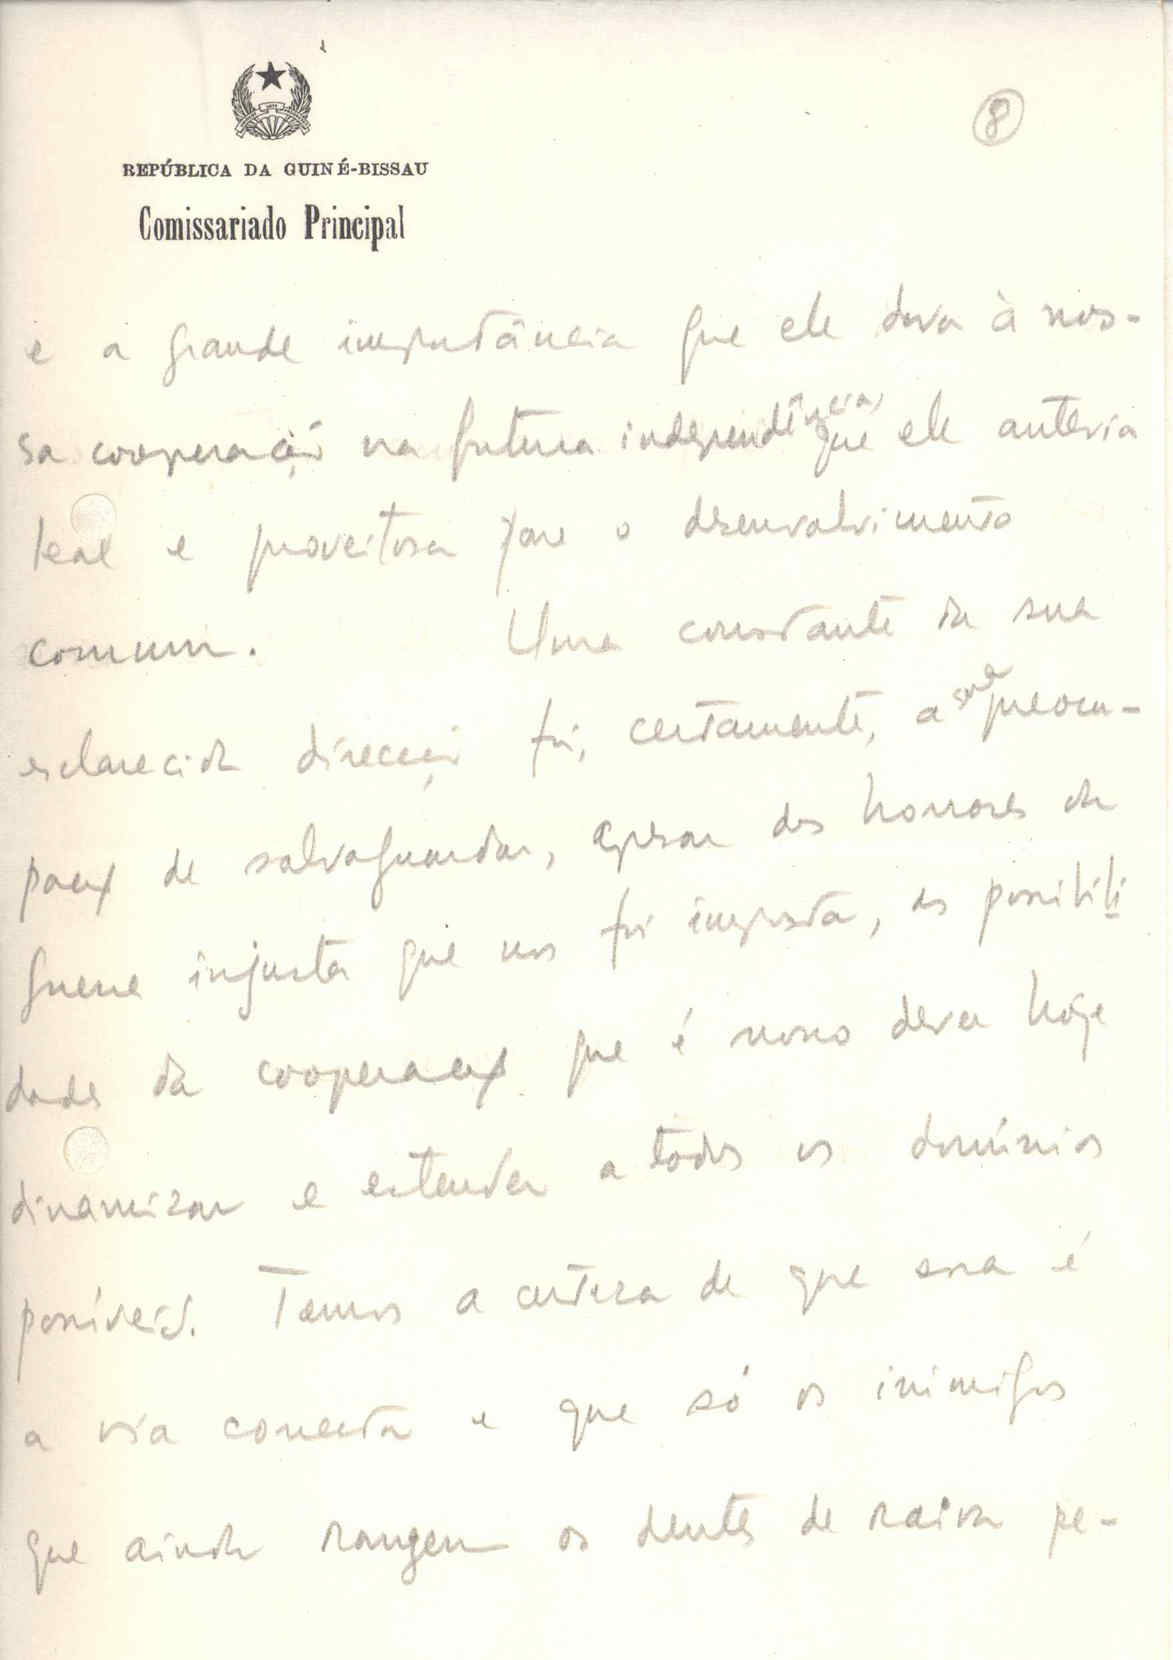 8
REPÚBLICA DA GUINÉ-BISSAU
Comissariado Principal
e a grande importância que ele dava à nos-
sa cooperação na futura independência, que ele antevia
leal e proveitosa para o desenvolvimento
comum. Uma constante da sua
esclarecida direcção foi, certamente, a sua preocu-
pação de salvaguardar, apesar dos horrores da
guerra injusta que nos foi imposta, as possibili
dades da cooperação que é nosso dever hoje
dinamizar e estender a todos os domínios
possíveis. Temos a certeza de que essa é
a via correcta e que só os inimigos
que ainda rangem os dentes de raiva pe-